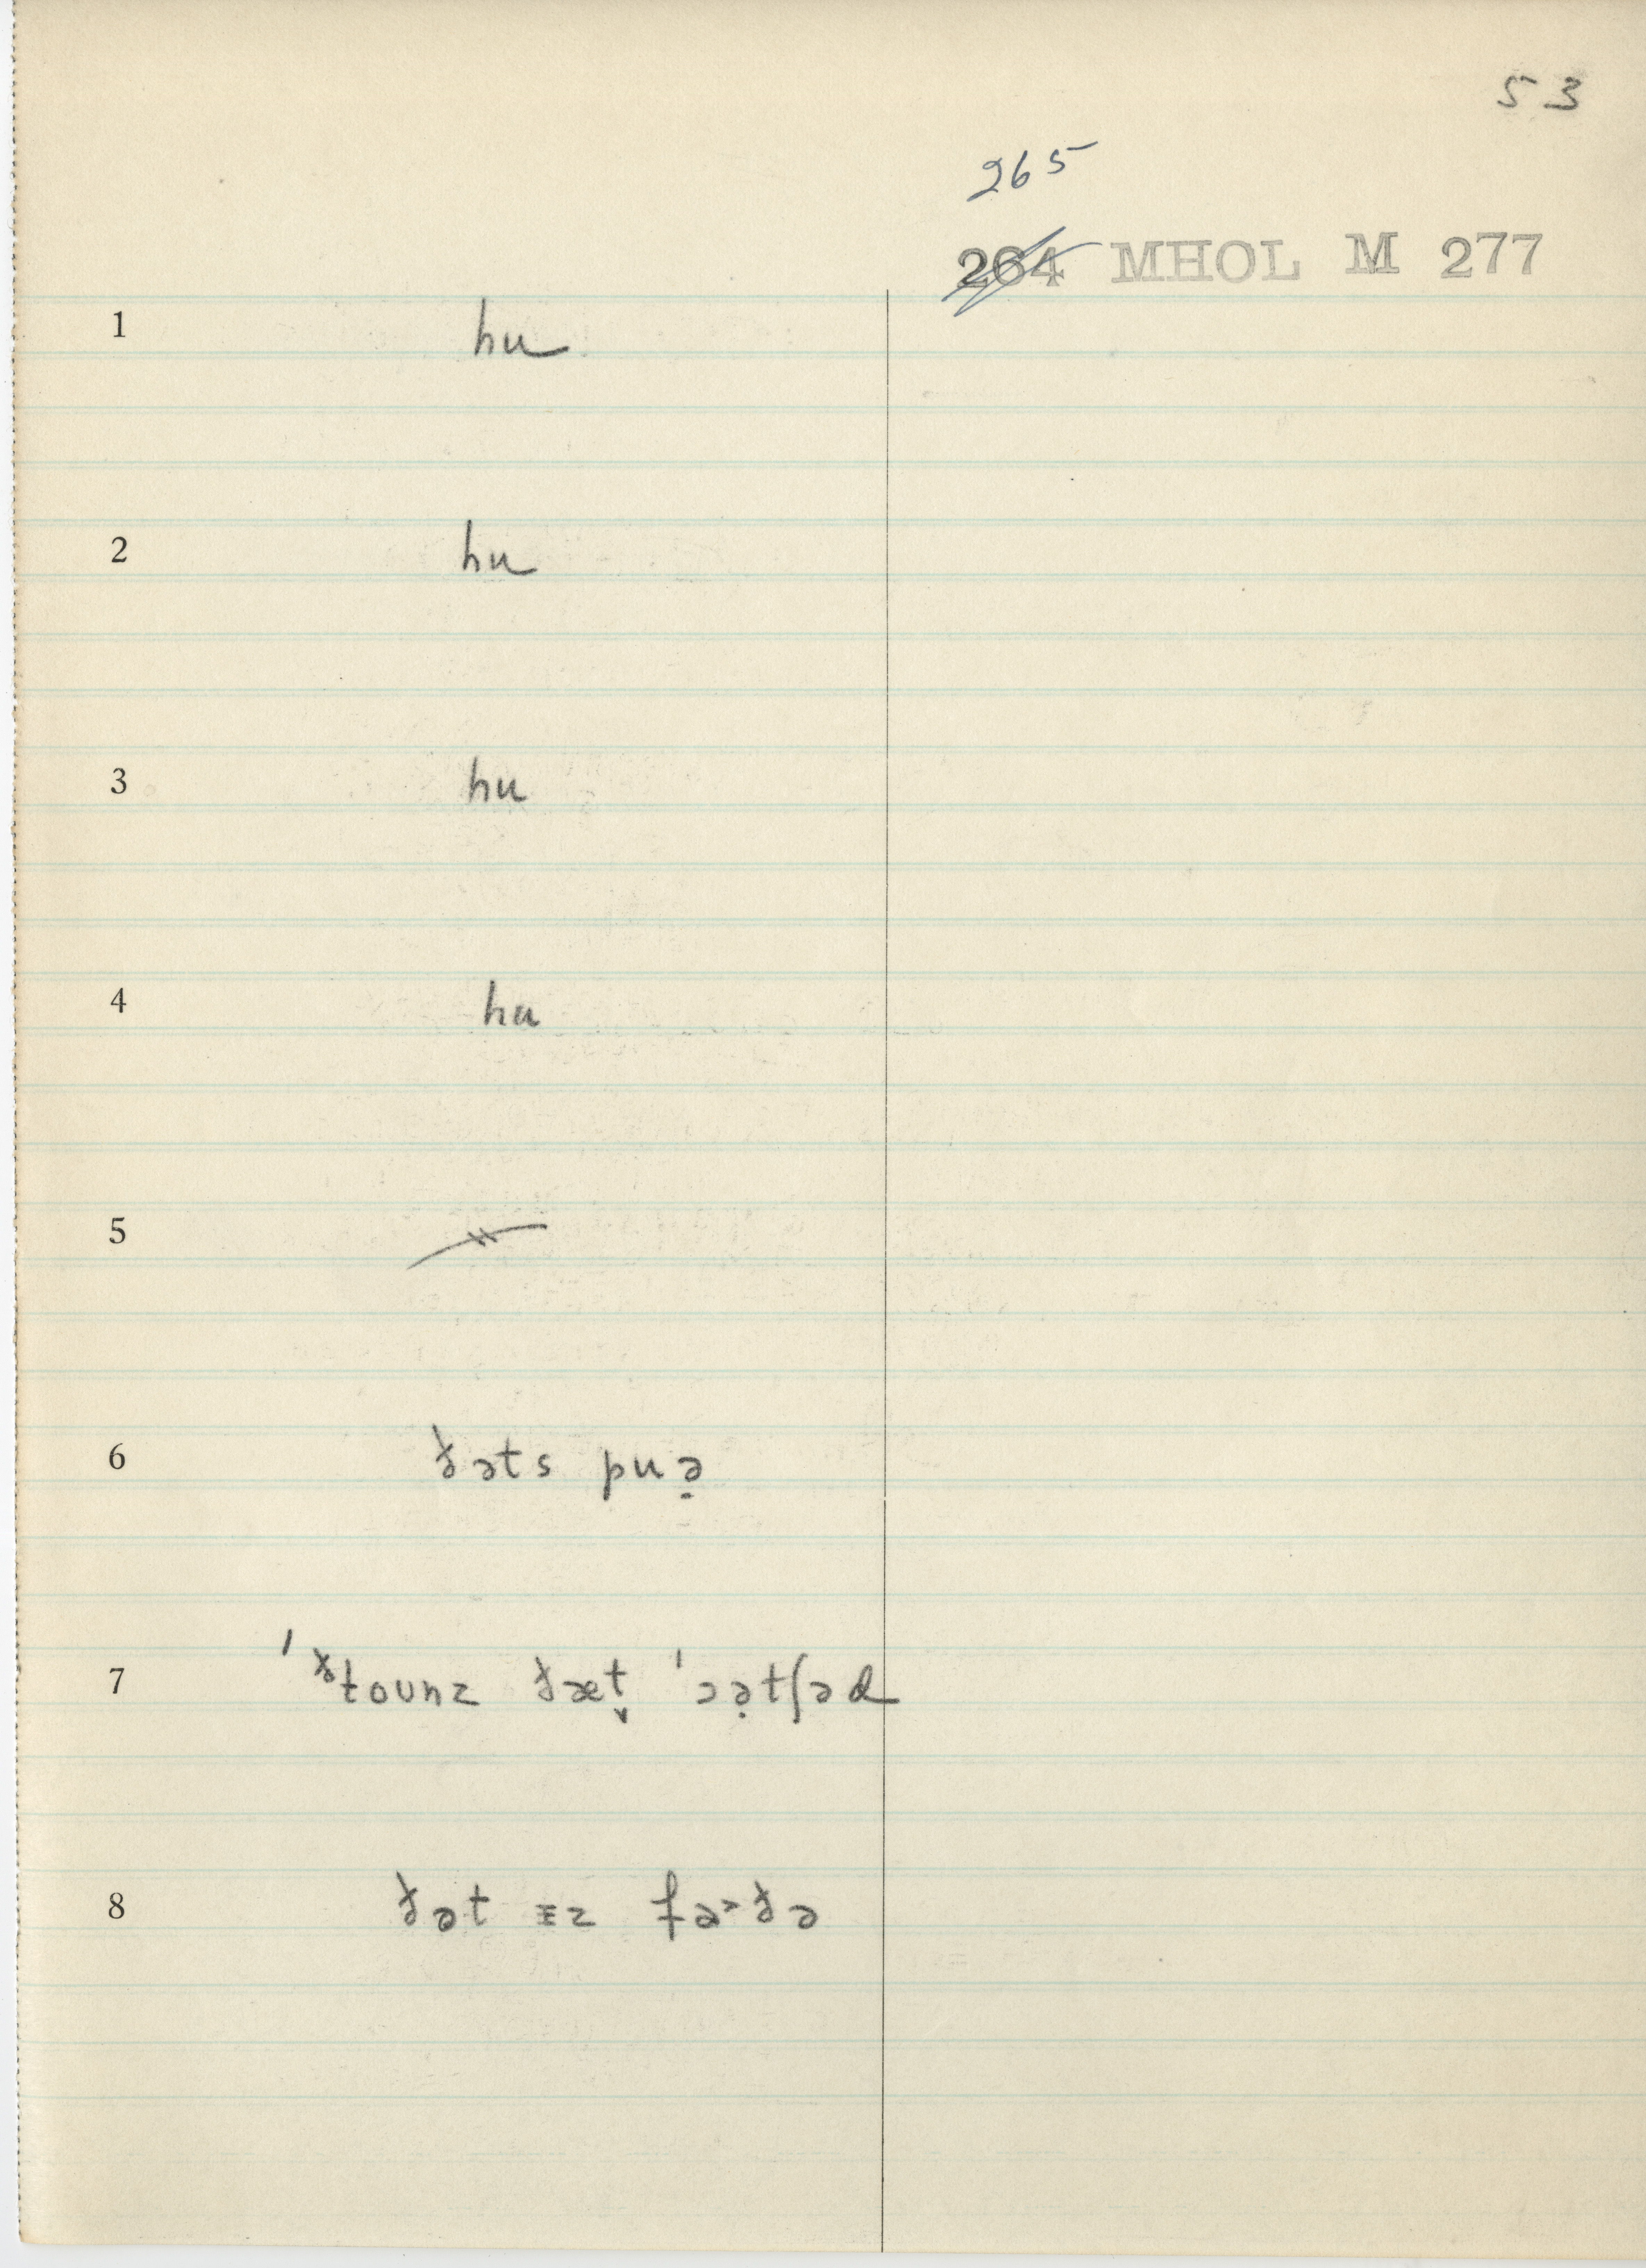 53
265
264 MHOL M 277
1 hu
2 hu
3 hu
4 hu
5
6 ðəts puə̣
7 ˈðtounz ðæt̬ ˈɔə̣tʃəd
8 ðət ɪz fɚðə